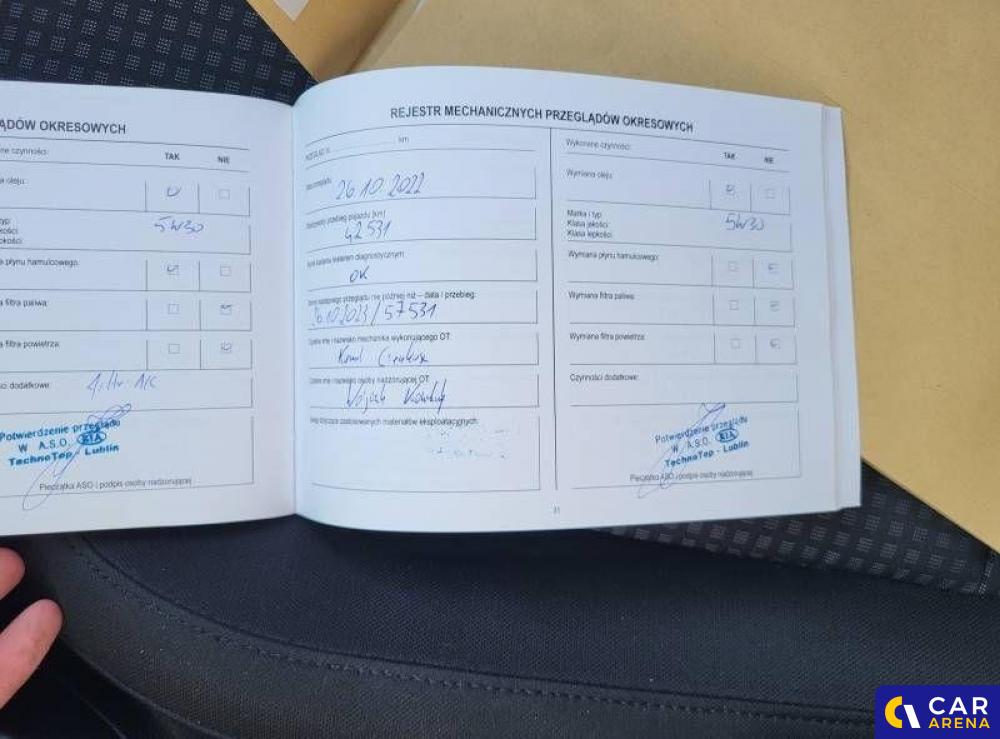 ĄDÓW OKRESOWYCH
ne czynności:
TAK NIE
a oleju:
typ:
kości:
pkości:
5W30
a płynu hamulcowego:
a filtra paliwa:
a filtra powietrza:
ści dodatkowe:
Potwierdzenie przeglądu
W A.S.O. KIA
TechnoTop - Lublin
Pieczątka ASO i podpis osoby nadzorującej
REJESTR MECHANICZNYCH PRZEGLĄDÓW OKRESOWYCH
km
26.10.2022
przebieg pojazdu [km]
42531
diagnostycznym:
OK
przeglądu nie później niż – data i przebieg:
26.10.2023/57531
imię i nazwisko mechanika wykonującego OT:
Kamil
imię i nazwisko osoby nadzorującej OT:
zastosowanych materiałów eksploatacyjnych:
Wykonane czynności:
TAK NIE
Wymiana oleju:
Marka i typ:
Klasa jakości:
Klasa lepkości:
5W30
Wymiana płynu hamulcowego:
Wymiana filtra paliwa:
Wymiana filtra powietrza:
Czynności dodatkowe:
Potwierdzenie przeglądu
W A.S.O. KIA
TechnoTop - Lublin
Pieczątka ASO i podpis osoby nadzorującej
31
CAR
ARENA